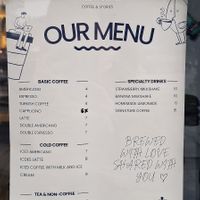 COFFEE & STORIES
OUR MENU
BASIC COFFEE
AMERICANO
ESPRESSO
TURKISH COFFEE
CAPPUCINO
LATTE
DOUBLE AMERICANO
DOUBLE ESPRESSO
COLD COFFEE
ICED AMERICANO
ICED LATTE
ICED COFFEE WITH MILK AND ICE
CREAM
TEA & NON-COFFEE
SPECIALTY DRINKS
STRAWBERRY MILKSHAKE
BANANA MILKSHAKE
HOMEMADE LEMONADE
SIGNATURE COFFEE
BREWED
WITH LOVE
SHARED WITH
YOU ♡